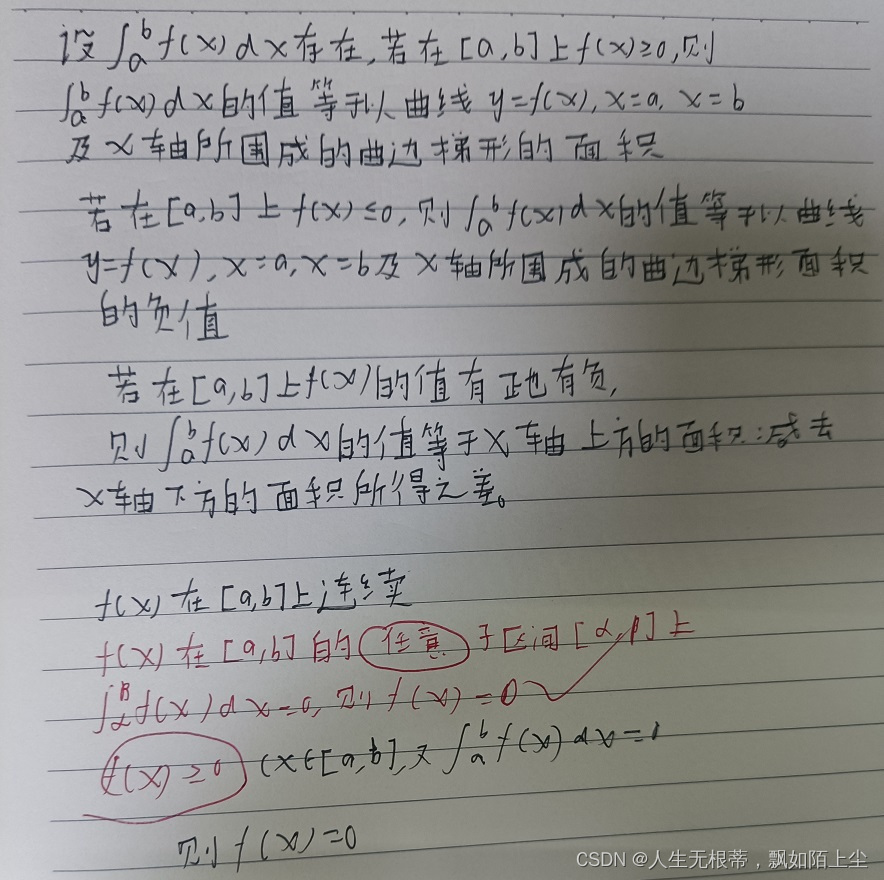 设∫ₐᵇ f(x)dx存在,若在[a,b]上f(x)≥0,则
∫ₐᵇ f(x)dx的值等于以曲线 y=f(x),x=a,x=b
及x轴所围成的曲边梯形的面积
若在[a,b]上f(x)≤0,则∫ₐᵇ f(x)dx的值等于以曲线
y=f(x),x=a,x=b及x轴所围成的曲边梯形面积
的负值
若在[a,b]上f(x)的值有正也有负,
则∫ₐᵇ f(x)dx的值等于x轴上方的面积减去
x轴下方的面积所得之差。
f(x)在[a,b]上连续
f(x)在[a,b]的任意子区间[α,β]上
∫_α^β f(x)dx=0,则f(x)=0 ✓
f(x)≥0 (x∈[a,b],又∫ₐᵇ f(x)dx=
则f(x)=0
CSDN @人生无根蒂，飘如陌上尘